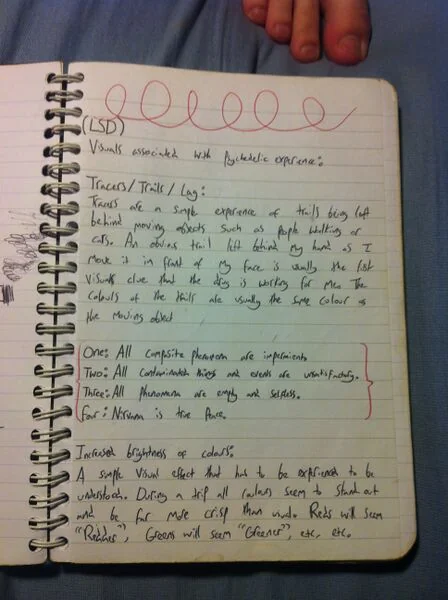 (LSD)
Visuals associated with Psychedelic experience:
Tracers/Trails/Lag:
Tracers are a simple experience of trails being left
behind moving objects such as people walking or
cars. An obvious trail left behind my hand as I
move it in front of my face is usually the first
visual clue that the drug is working for me. The
colours of the trails are usually the same colour as
the moving object
One: All composite phenomena are impermanent
Two: All contaminated things and events are unsatisfactory.
Three: All phenomena are empty and selfless.
Four: Nirvana is true Peace.
Increased brightness of colours:
A simple visual effect that has to be experienced to be
understood. During a trip all colours seem to stand out
and be far more crisp than usual. Reds will seem
"Redder", Greens will seem "Greener", etc, etc.